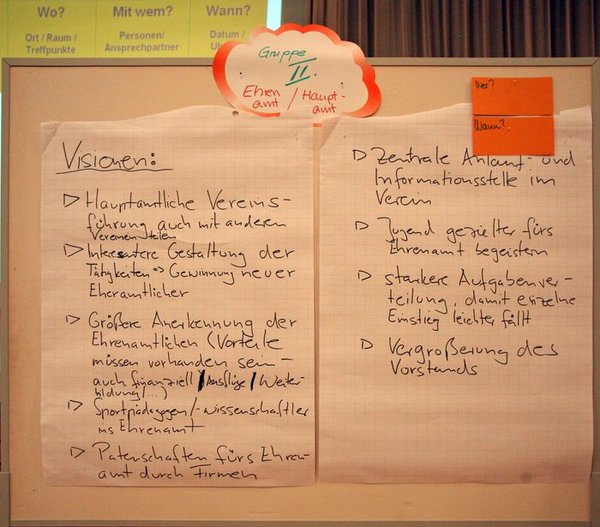 Wo?
Mit wem?
Wann?
Ort / Raum /
Treffpunkte
Personen/
Ansprechpartner
Datum /
Gruppe
II.
Ehren / Haupt-
amt amt
Wer?
Wann?
Visionen:
▷ Hauptamtliche Vereins-
führung auch mit anderen
Vereinen teilen
▷ Interesantere Gestaltung der
Tätigkeiten => Gewinnung neuer
Eheramtlicher
▷ Größere Anerkennung der
Ehrenamtlichen (Vorteile
müssen vorhanden sein –
auch finanziell / Ausflüge / Weiter-
bildung/...)
▷ Sportpädagogen/-wissenschaftler
ins Ehrenamt
▷ Patenschaften fürs Ehren-
amt durch Firmen
▷ Zentrale Anlauf- und
Informationsstelle im
Verein
▷ Jugend gezielter fürs
Ehrenamt begeistern
▷ stärkere Aufgabenver-
teilung, damit einzelne
Einstieg leichter fällt
▷ Vergrößerung des
Vorstands